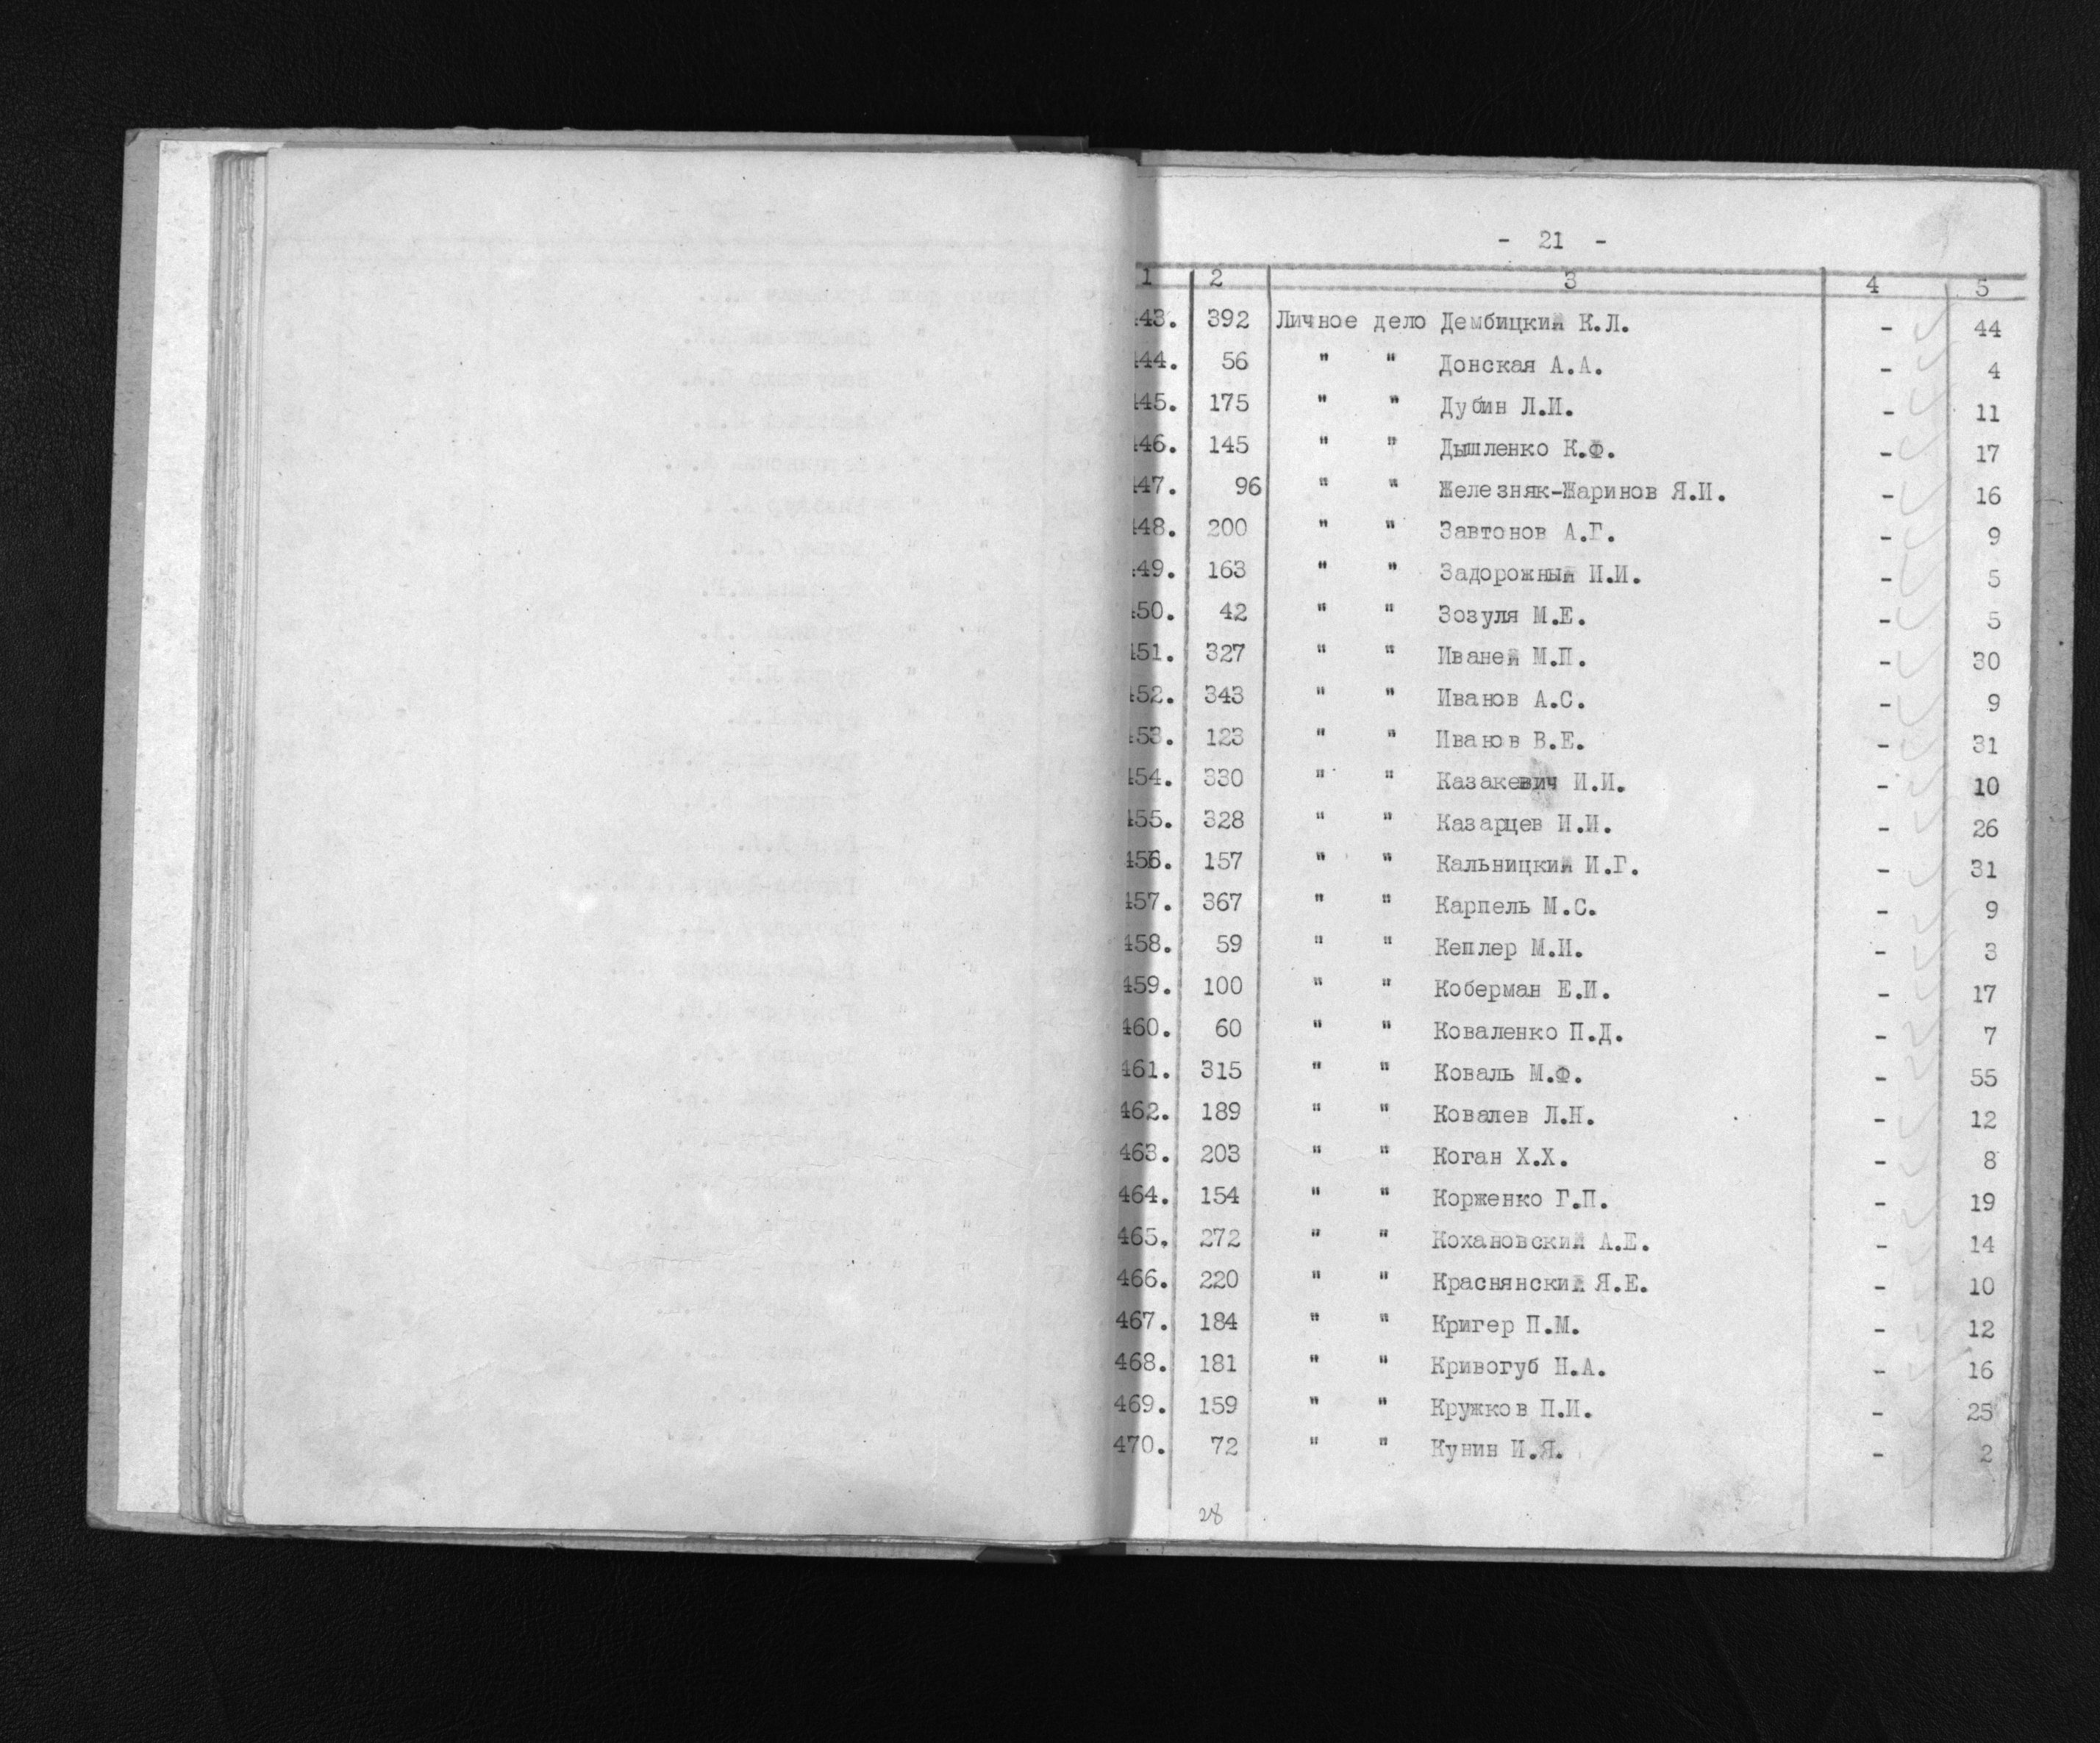 - 21 -
1 2 3 4 5
443. 392 Личное дело Дембицкий К.Л. - 44
444. 56 " " Донская А.А. - 4
445. 175 " " Дубин Л.И. - 11
446. 145 " " Дышленко К.Ф. - 17
447. 96 " " Железняк-Жаринов Я.И. - 16
448. 200 " " Завтонов А.Г. - 9
449. 163 " " Задорожный И.И. - 5
450. 42 " " Зозуля М.Е. - 5
451. 327 " " Иваней М.П. - 30
452. 343 " " Иванов А.С. - 9
453. 123 " " Иванов В.Е. - 31
454. 330 " " Казакевич И.И. - 10
455. 328 " " Казарцев И.И. - 26
456. 157 " " Кальницкий И.Г. - 31
457. 367 " " Карпель М.С. - 9
458. 59 " " Кеплер М.И. - 3
459. 100 " " Коберман Е.И. - 17
460. 60 " " Коваленко П.Д. - 7
461. 315 " " Коваль М.Ф. - 55
462. 189 " " Ковалев Л.Н. - 12
463. 203 " " Коган Х.Х. - 8
464. 154 " " Корженко Г.П. - 19
465. 272 " " Кохановский А.Е. - 14
466. 220 " " Краснянский Я.Е. - 10
467. 184 " " Кригер П.М. - 12
468. 181 " " Кривогуб Н.А. - 16
469. 159 " " Кружков П.И. - 25
470. 72 " " Кунин И.Я. - 2
28